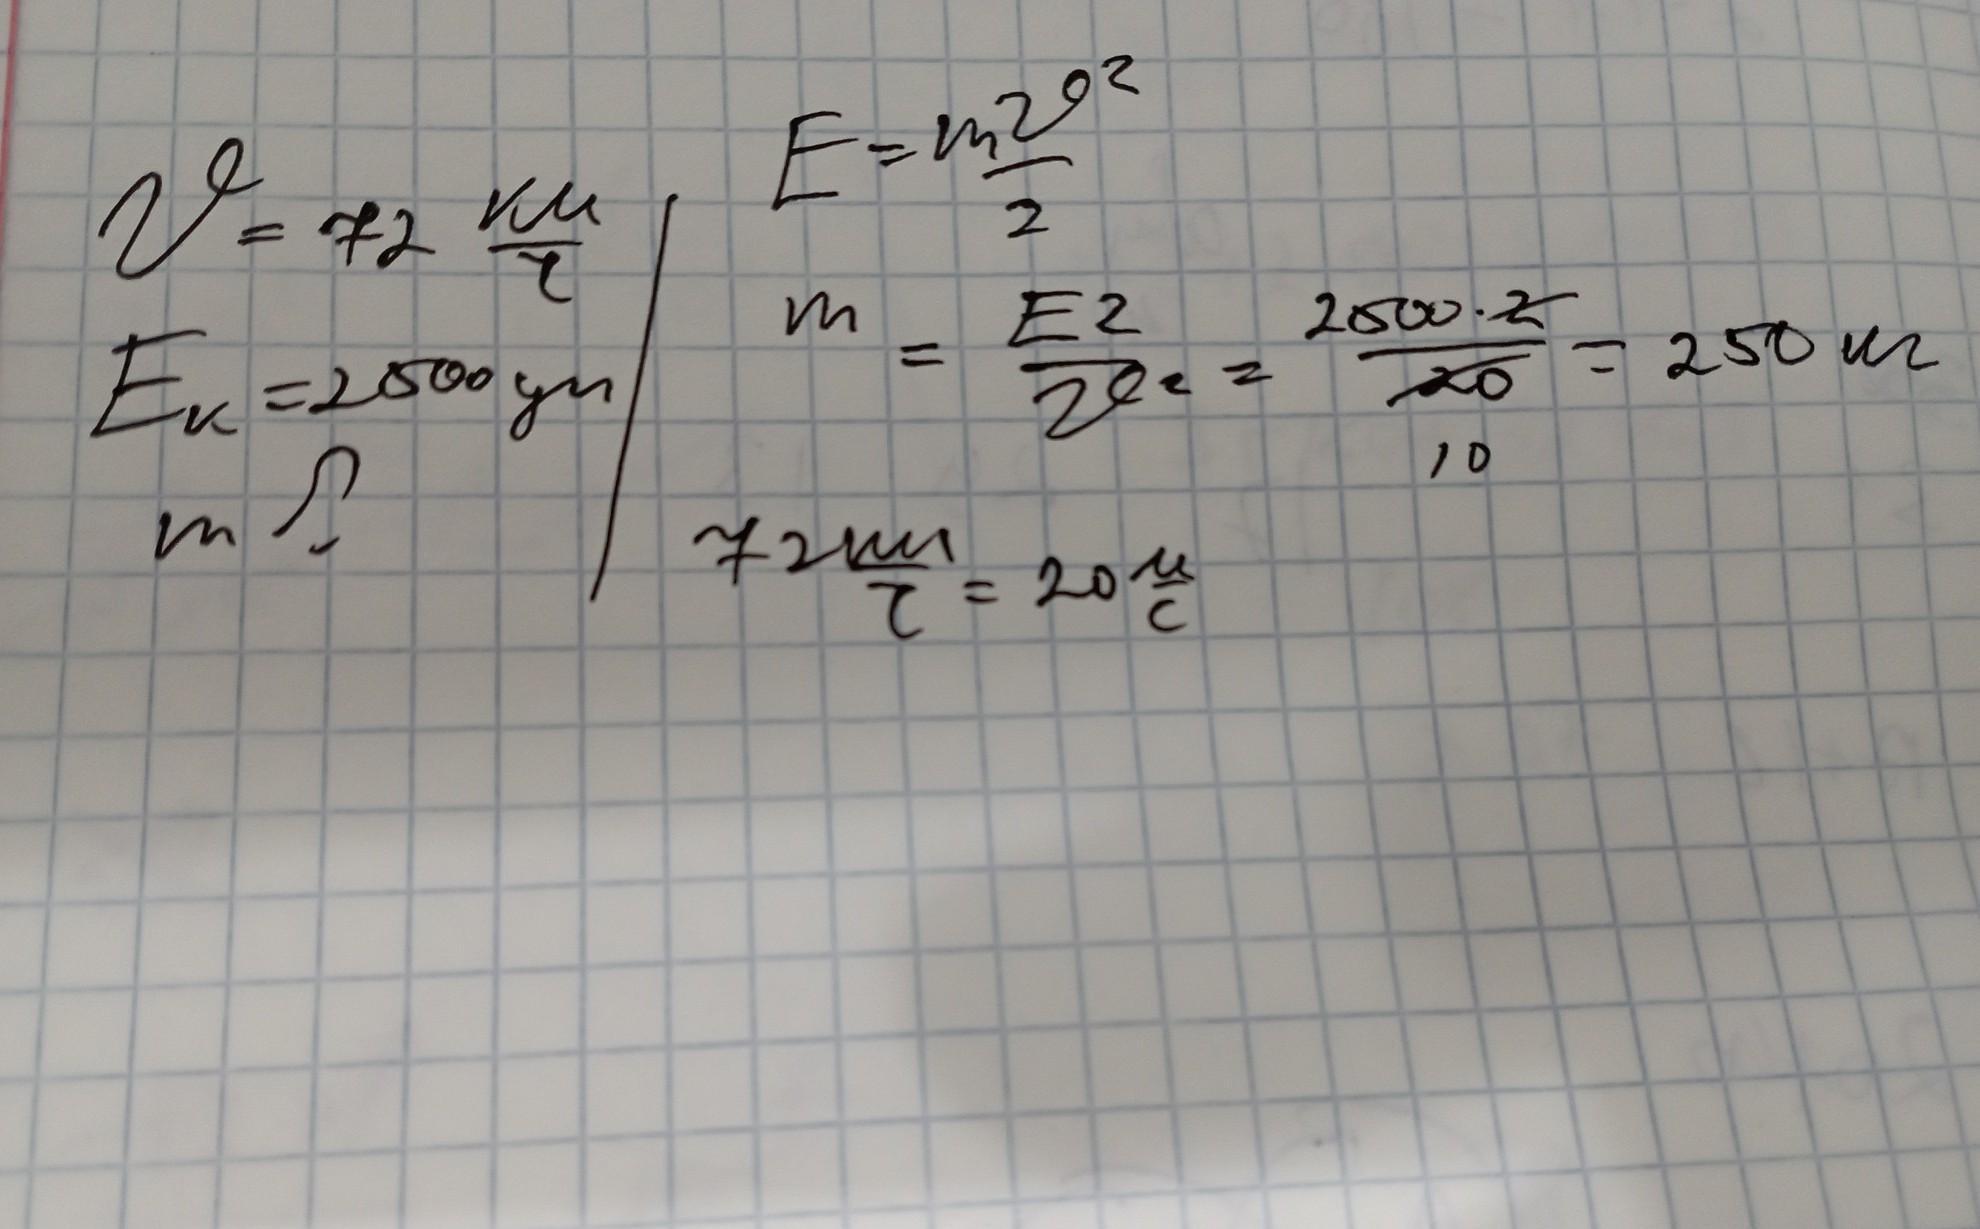 v = 72 км/ч
Eк = 2500 дж
m ?
E = mv²/2
m = E2/v² = 2500·2/20 = 250 кг
10
72 км/ч = 20 м/с